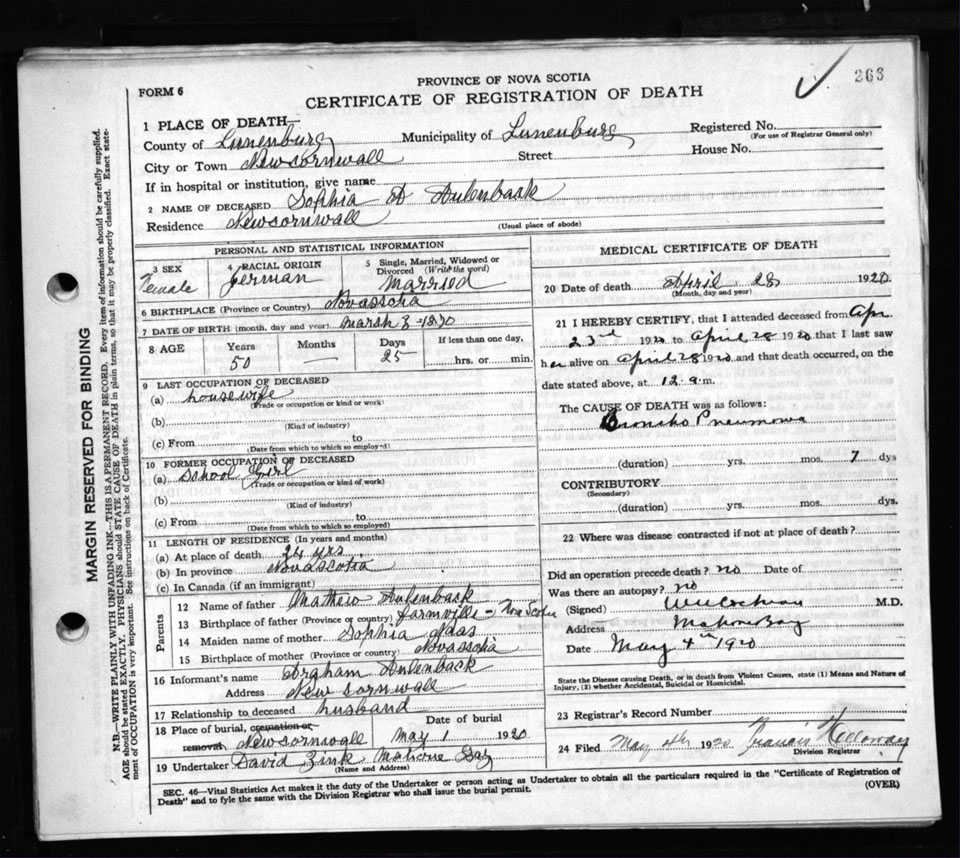 263
PROVINCE OF NOVA SCOTIA
FORM 6
CERTIFICATE OF REGISTRATION OF DEATH
1 PLACE OF DEATH—
County of Lunenburg Municipality of Lunenburg Registered No.
(For use of Registrar General only)
City or Town Newcornwall Street House No.
If in hospital or institution, give name
2 NAME OF DECEASED Sophia A Aulenback
Residence Newcornwall
(Usual place of abode)
PERSONAL AND STATISTICAL INFORMATION
3 SEX
Female
4 RACIAL ORIGIN
German
5 Single, Married, Widowed or
Divorced (Write the word)
Married
6 BIRTHPLACE (Province or Country) Novasscha
7 DATE OF BIRTH (month, day and year) Marsh 3 - 1870
8 AGE Years Months Days If less than one day,
50 — 25 hrs. or min.
9 LAST OCCUPATION OF DECEASED
(a) housewife
(Trade or occupation or kind or work)
(b)
(Kind of industry)
(c) From to
(Date from which to which so employed)
10 FORMER OCCUPATION OF DECEASED
(a) School Girl
(Trade or occupation or kind of work)
(b)
(Kind of industry)
(c) From to
(Date from which to which so employed)
11 LENGTH OF RESIDENCE (In years and months)
(a) At place of death 24 yrs.
(b) In province Novascotia
(c) In Canada (if an immigrant)
Parents
12 Name of father Mathew Aulenback
13 Birthplace of father (Province or country) Farmville - Nova Scotia
14 Maiden name of mother Sophia
15 Birthplace of mother (Province or country) Novasshia
16 Informant's name Abraham Aulenback
Address New Cornwall
17 Relationship to deceased husband
18 Place of burial, cremation or removal Newcornwall
Date of burial
May 1 1920
19 Undertaker David Zink Mahone Bay
(Name and Address)
MEDICAL CERTIFICATE OF DEATH
20 Date of death April 28 1920
(Month, day and year)
21 I HEREBY CERTIFY, that I attended deceased from Apr.
23rd 1920 to April 28 1920 that I last saw
her alive on April 28 1920 and that death occurred, on the
date stated above, at 12 a.m.
The CAUSE OF DEATH was as follows:
Broncho Pneumonia
(duration) yrs. mos. 7 dys
CONTRIBUTORY
(Secondary)
(duration) yrs. mos. dys.
22 Where was disease contracted if not at place of death?
Did an operation precede death? no Date of
Was there an autopsy? no
(Signed) W Cochran M.D.
Address Mahone Bay
Date May 4th 1920
State the Disease causing Death, or in death from Violent Causes, state (1) Means and Nature of
Injury, (2) whether Accidental, Suicidal or Homicidal.
23 Registrar's Record Number
24 Filed May 4th 1920 Francis Hallowway
Division Registrar
SEC. 46—Vital Statistics Act makes it the duty of the Undertaker or person acting as Undertaker to obtain all the particulars required in the "Certificate of Registration of
Death" and to fyle the same with the Division Registrar who shall issue the burial permit.
(OVER)
MARGIN RESERVED FOR BINDING
N.B.—WRITE PLAINLY WITH UNFADING INK—THIS IS A PERMANENT RECORD. Every item of information should be carefully supplied.
AGE should be stated EXACTLY. PHYSICIANS should STATE CAUSE OF DEATH in plain terms, so that it may be properly classified. Exact state-
ment of OCCUPATION is very important. See instructions on back of Certificate.